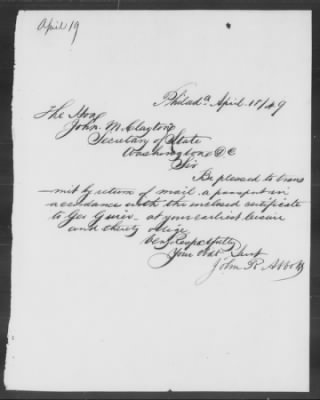 April 19
Philada April 18/49
The Hon
John. M. Clayton
Secretary of State
Washington DC
Sir
Be pleased to trans
-mit by return of mail. a passport in
accordance with the enclosed certificate
to Geo at your earliest leisure
and thereby oblige
Very Respectfully
Your Obt Svnt
John R. Abbott